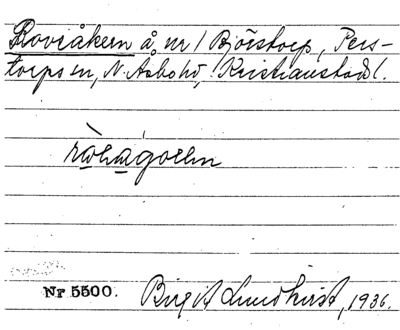 Roviåkern å, nr 1 Björstorp, Pers-
torps sn, N. Åsbo hd, Kristianstads l.
Nr 5500. Birgit Lundkvist, 1936.